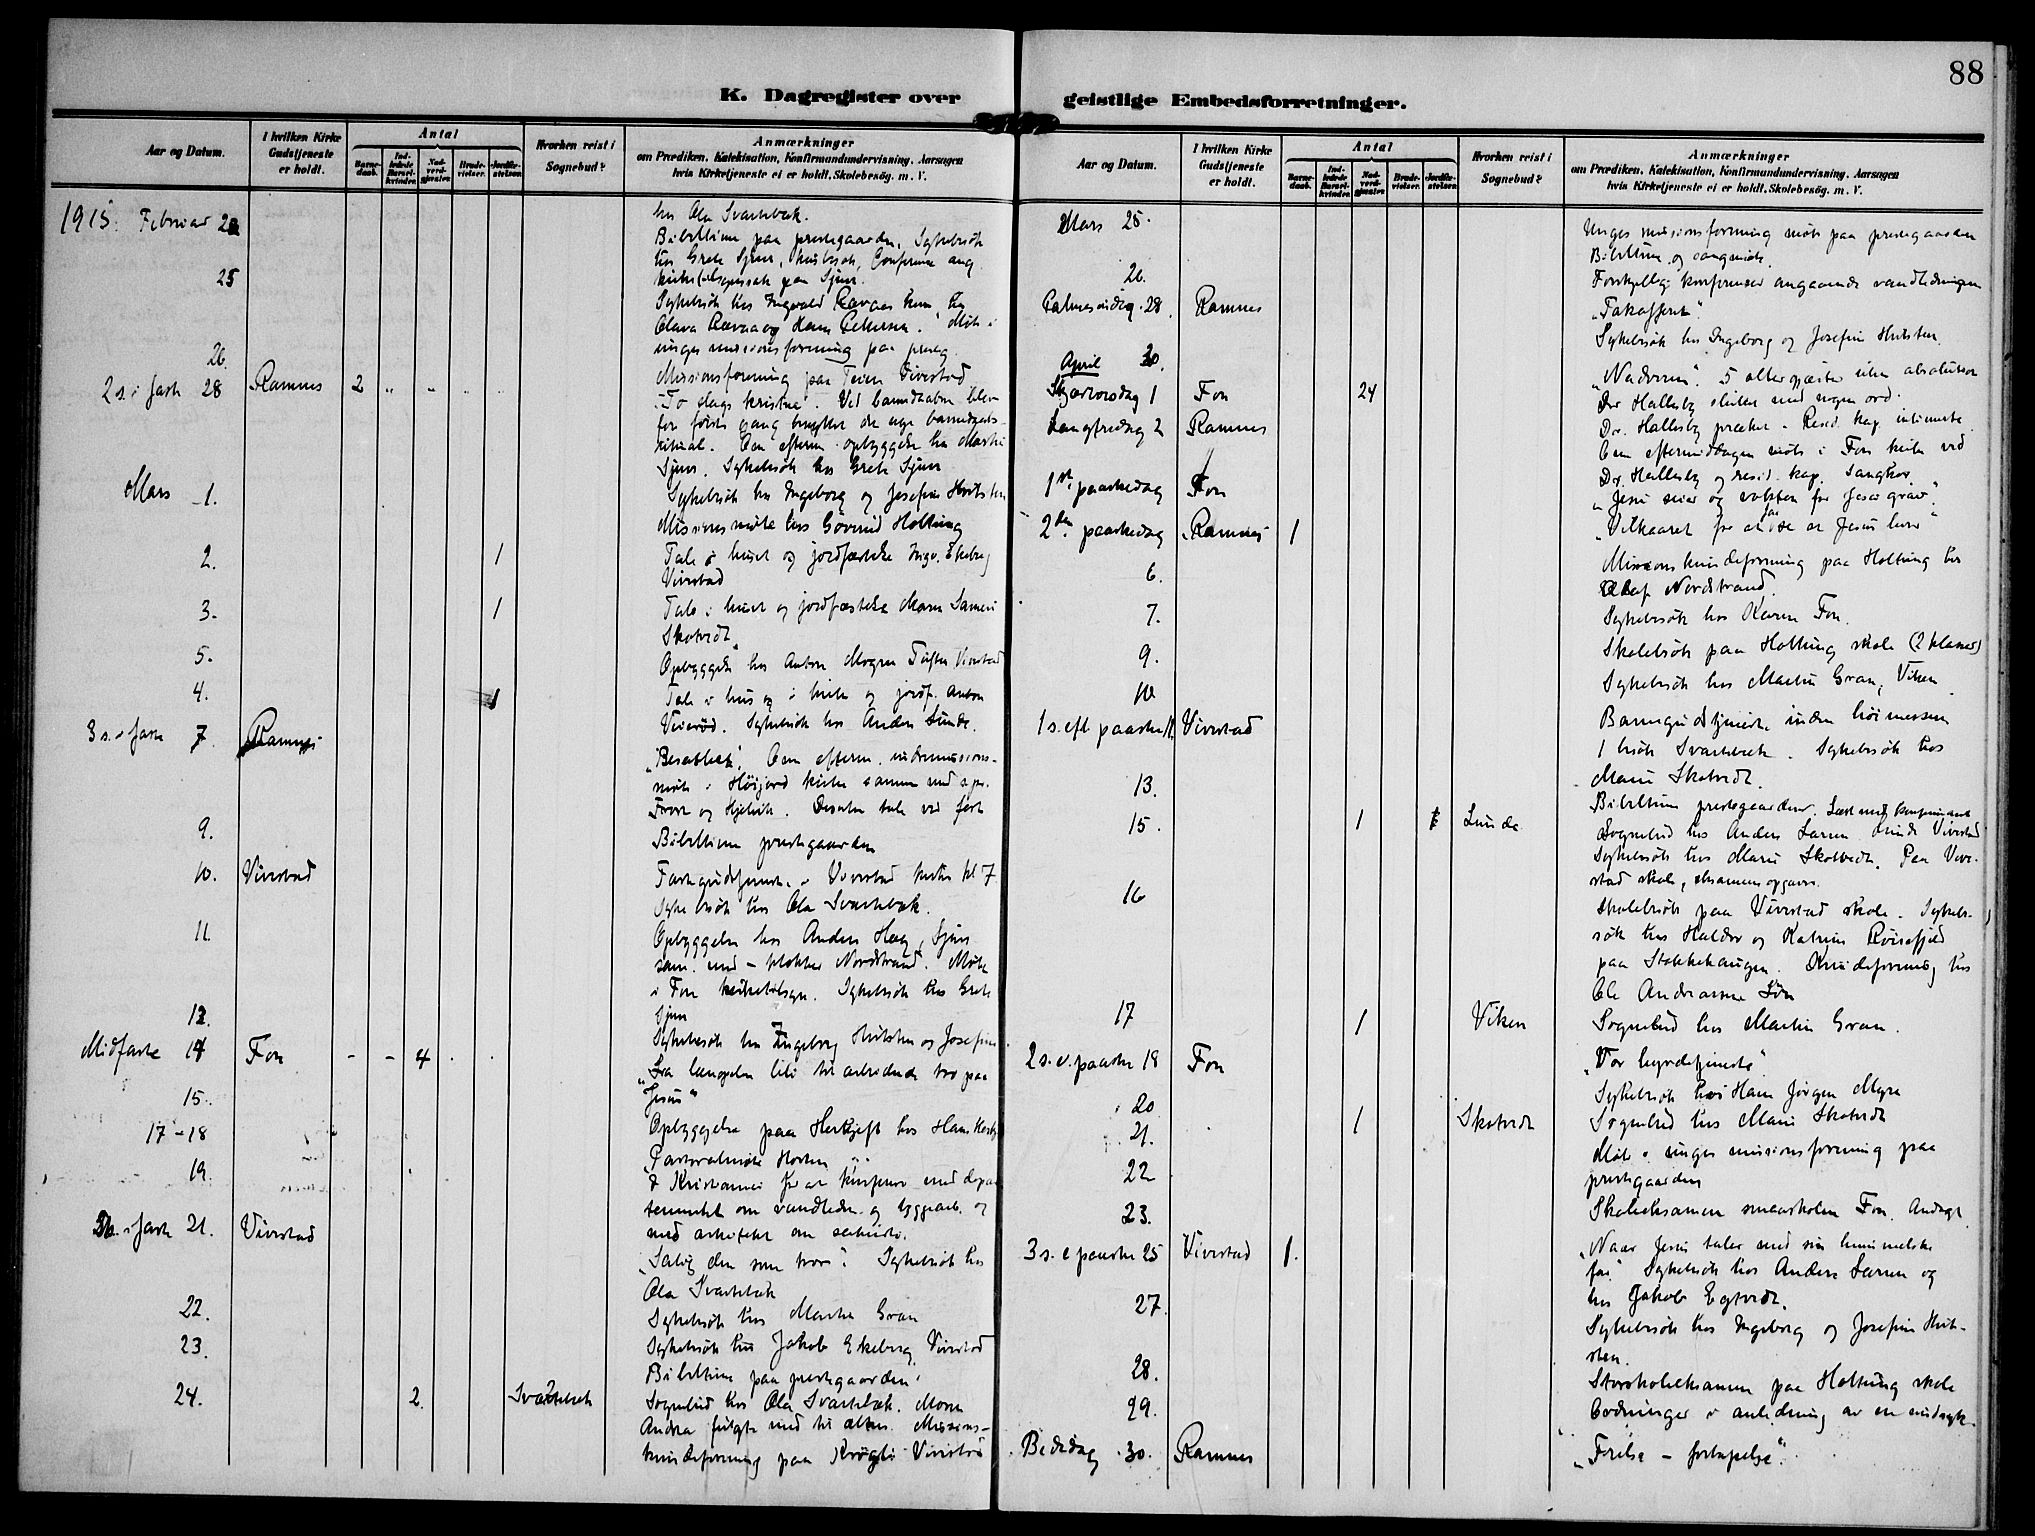 88
K. Dagregister over geistlige Embedsforretninger.
Aar og Datum.
I hvilken Kirke Gudstjeneste er holdt.
Antal
Barne-daab.
Ind-ledede Barsel-kvinder.
Nad-verd-gjester.
Brude-vielser.
Jordfæ-stelser.
Hvorhen reist i Sognebud?
Anmærkninger
om Prædiken, Katekisation, Konfirmandundervisning, Aarsagen
hvis Kirketjeneste ei er holdt, Skolebesög. m. V.
1915. Februar
hos Ola Svartebæk.
Bibeltime paa prestegaarden, Sykebesök
hos Grete Sjuve, husbesök, Conferanse ang.
25
Sykebesök hos Ingvald
Möte i
unges missionsforening paa presteg.
26. Missionsforening paa Teien Vivestad
2 s. i faste 28 Ramnes 2 " "
"To slags kristne". Ved barnedaaben blev
for förste gang benyttet det nye barnedaabs-
ritual. Om efterm. opbyggelse hos
Sjuve. Sykebesök hos Grete Sjuve
Mars 1. Sykebesök hos Ingeborg og Josefine Hvitsten
Missionsmöte hos Gövind Holtung
2. 1 Tale i huset og jordfæstelse Ingv. Ekeberg
Vivestad
3. 1 Tale i huset og jordfæstelse Maren
Skotvedt
5. Opbyggelse hos Anton Mogren Tufte Vivestad
4. 1 Tale i hus og i kirke og jordf. Anton
Sykebesök hos Anders Lunde.
3 s. i faste 7. Ramnes
Om efterm. indremissions-
möte i Höijord kirke sammen med
9. Bibeltime prestegaarden
10. Vivestad Fastegudstjeneste i Vivestad kirke kl 7
Sykebesök hos Ola Svartebæk.
11. Opbyggelse hos Anders Haug, Sjuve
sam. med klokker Nordstrand. Möte
i Fon kirketilsyn. Sykebesök hos Grete
Sjuve
12. Sykebesök hos Ingeborg Hvitsten og Josefine
Midfaste 14 Fon - - 4
"Fra længselen til
Jesus"
15. Opbyggelse paa Herkjeft hos Hans
17-18 Pastoralmöte Horten
19. I Kristiania for at konferere med depar
tementet om vandledn. og byggearb. og
med arkitekt om
faste 21. Vivestad
"Salig den som tror". Sykebesök hos
Ola Svartebæk
22. Sykebesök hos Martin Gran
23. Sykebesök hos Jakob Ekeberg Vivestad
Bibeltime paa prestegaarden.
24. 2 Svartebæk Sognebud hos Ola Svartebæk. Moren
Andrea fulgte med til alters. Missions-
kvindeforening paa Krøgli Vivestad
Aar og Datum.
I hvilken Kirke Gudstjeneste er holdt.
Antal
Barne-daab.
Ind-ledede Barsel-kvinder.
Nad-verd-gjester.
Brude-vielser.
Jordfæ-stelser.
Hvorhen reist i Sognebud?
Anmærkninger
om Prædiken, Katekisation, Konfirmandundervisning, Aarsagen
hvis Kirketjeneste ei er holdt, Skolebesög. m. V.
Mars 25. Unges missionsforening möte paa prestegaarden
Bibeltime og sangmöte.
26. Forskjellig konferanser angaaende vandledningen
Palmesöndag 28. Ramnes "Takofferet".
30. Sykebesök hos Ingeborg og Josefine Hvitsten
April Skjærtorsdag 1 Fon 24
"Nadveren". 5 altergjæster uten absolution
Dr Hallesby sluttet med nogen ord.
Langfredag 2 Ramnes
Dr. Hallesby præket. Resid. kap. intimerte
Om eftermiddagen möte i Fon kirke ved
Dr. Hallesby og resid. kap. Sangkor.
1ste paaskedag Fon "Jesu seier og vakten for Jesu grav".
2den paaskedag Ramnes 1 "Vilkaaret for at faa se at Jesus lever"
6. Missionskvindeforening paa Holtung hos
Olaf Nordstrand.
7. Sykebesök hos Karen Fon.
9. Skolebesök paa Holtung skole (2 klasser)
10 Sykebesök hos Martin Gran, Viken.
1 s. eft paaske 11. Vivestad Barnegudstjeneste inden höimessen
1 besök Svartebæk. Sykebesök hos
Marie Skotvedt.
13. Bibeltime prestegaarden.
15. 1 Lunde Sognebud hos Anders Larsen Lunde Vivestad
Sykebesök hos Marie Skotvedt. Paa Vive-
stad skole, eksamensopgaver.
16 Skolebesök paa Vivestad skole. Sykebe-
sök hos Haldor og Katrine Röisefjeld
paa Stokkehaugen. Kvindeforening hos
Ole Andreasen Lön
17 1 Viken Sognebud hos Martin Gran.
2 s. e. paaske 18 Fon "Vor hyrdetjeneste"
20 Sykebesök hos Hans Jörgen Myra
21. 1 Skotvedt Sognebud hos Marie Skotvedt
22 Möte i unges missionsforening paa
prestegaarden
23. Skoleeksamen smaaskolen Fon. Andagt
3 s. e paaske 25 Vivestad 1. "Naar Jesus taler med sin himmelske
far." Sykebesök hos Anders Larsen og
hos Jakob Egtvedt.
27. Sykebesök hos Ingeborg og Josefine Hvit-
sten.
28. Storskoleeksamen paa Holtung skole
29. i anledning av en sindssyk.
Bededag 30. Ramnes "Frelse - fortapelse".